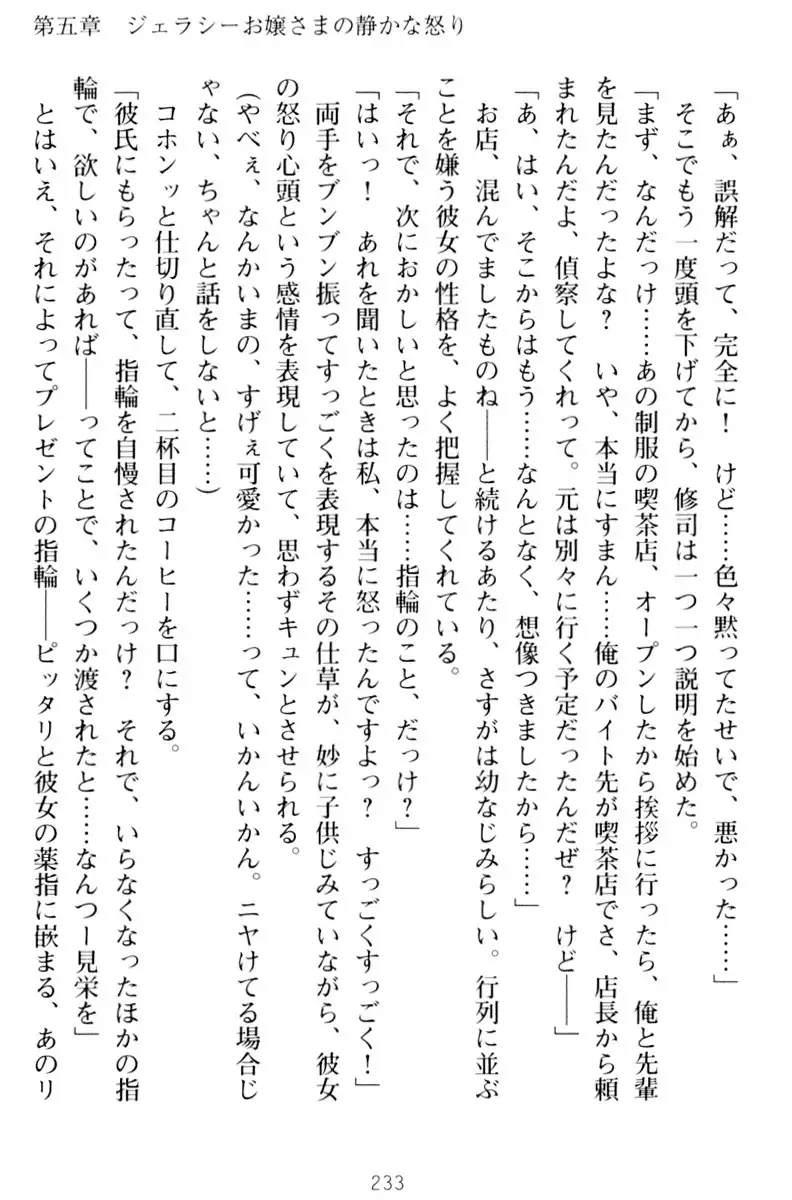 第五章　ジェラシーお嬢さまの静かな怒り
「あぁ、誤解だって、完全に！　けど……色々黙ってたせいで、悪かった……」
　そこでもう一度頭を下げてから、修司は一つ一つ説明を始めた。
「まず、なんだっけ……あの制服の喫茶店、オープンしたから挨拶に行ったら、俺と先輩
を見たんだったよな？　いや、本当にすまん……俺のバイト先が喫茶店でさ、店長から頼
まれたんだよ、偵察してくれって。元は別々に行く予定だったんだぜ？　けど――」
「あ、はい、そこからはもう……なんとなく、想像つきましたから……」
　お店、混んでましたものね――と続けるあたり、さすがは幼なじみらしい。行列に並ぶ
ことを嫌う彼女の性格を、よく把握してくれている。
「それで、次におかしいと思ったのは……指輪のこと、だっけ？」
「はいっ！　あれを聞いたときは私、本当に怒ったんですよっ？　すっごくすっごく！」
　両手をブンブン振ってすっごくを表現するその仕草が、妙に子供じみていながら、彼女
の怒り心頭という感情を表現していて、思わずキュンとさせられる。
（やべぇ、なんかいまの、すげぇ可愛かった……って、いかんいかん。ニヤけてる場合じ
ゃない、ちゃんと話をしないと……）
　コホンッと仕切り直して、二杯目のコーヒーを口にする。
「彼氏にもらったって、指輪を自慢されたんだっけ？　それで、いらなくなったほかの指
輪で、欲しいのがあれば――ってことで、いくつか渡されたと……なんつー見栄を」
　とはいえ、それによってプレゼントの指輪――ピッタリと彼女の薬指に嵌まる、あのリ
233